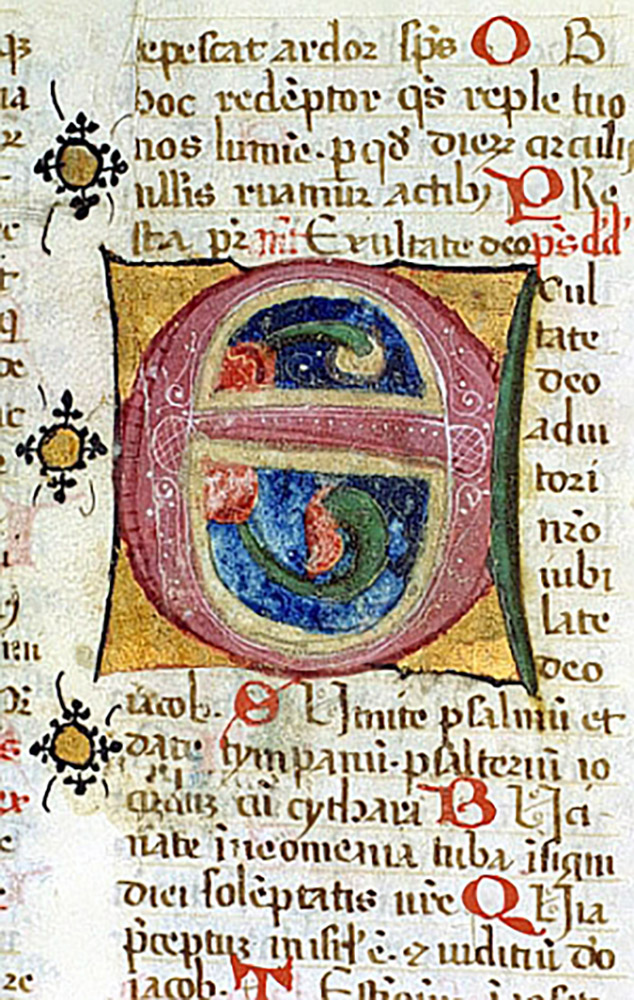 epescat ardor sps O B
hoc redēptor qs reple tuo
nos lumīe. p qd dierz circulis
nullis ruamur actibz P Re
sta pr Exultate deo ps dd
E xul
tate
deo
adiu
tori
nro
iubi
late
deo
iacob. S Umite psalmū et
date tympanū. psalteriū io
cūdū cū cythara B Uci
nate ī neomenia tuba ī signi
diei solēptatis ure Q Uia
pceptuz in isrl ē. ⁊ iudiciū do
iacob. T Estīoniū